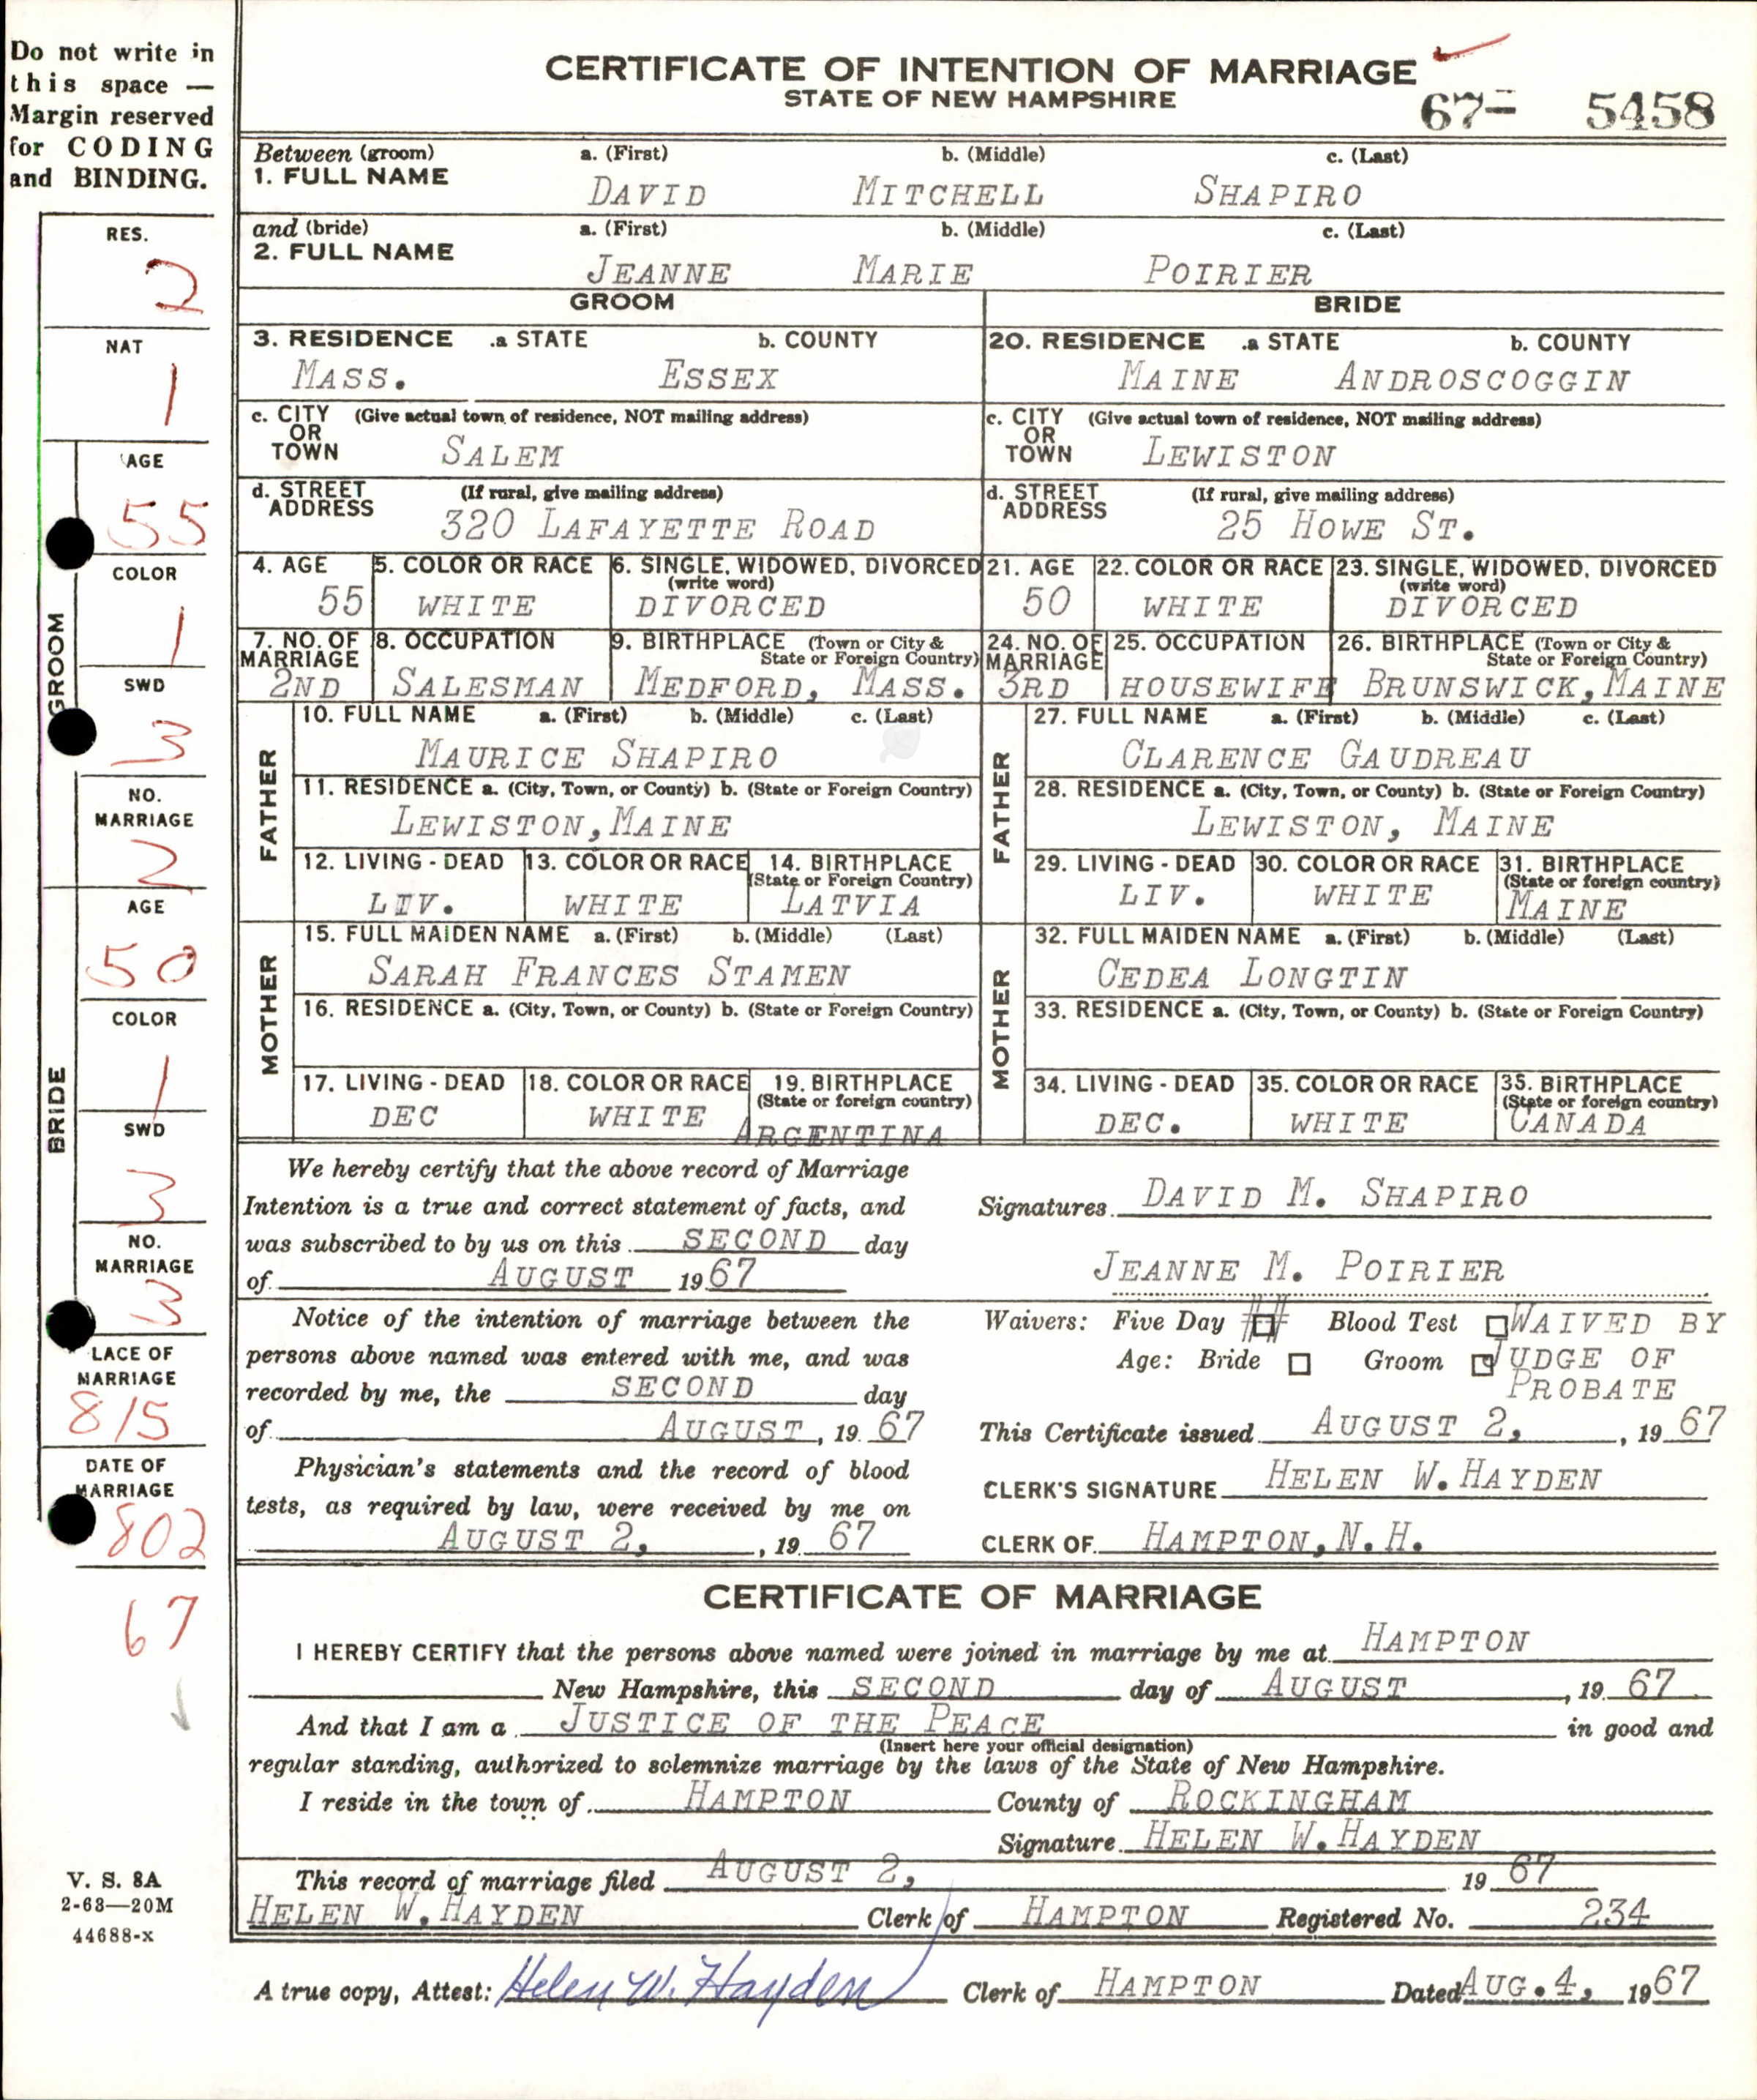 Do not write in
this space —
Margin reserved
for CODING
and BINDING.
CERTIFICATE OF INTENTION OF MARRIAGE
STATE OF NEW HAMPSHIRE
67- 5458
Between (groom) a. (First) b. (Middle) c. (Last)
1. FULL NAME
DAVID MITCHELL SHAPIRO
and (bride) a. (First) b. (Middle) c. (Last)
2. FULL NAME
JEANNE MARIE POIRIER
GROOM BRIDE
3. RESIDENCE .a STATE b. COUNTY 20. RESIDENCE .a STATE b. COUNTY
MASS. ESSEX MAINE ANDROSCOGGIN
c. CITY (Give actual town of residence, NOT mailing address) c. CITY (Give actual town of residence, NOT mailing address)
OR OR
TOWN SALEM TOWN LEWISTON
d. STREET (If rural, give mailing address) d. STREET (If rural, give mailing address)
ADDRESS 320 LAFAYETTE ROAD ADDRESS 25 HOWE ST.
4. AGE 5. COLOR OR RACE 6. SINGLE, WIDOWED, DIVORCED 21. AGE 22. COLOR OR RACE 23. SINGLE, WIDOWED, DIVORCED
(write word) (write word)
55 WHITE DIVORCED 50 WHITE DIVORCED
7. NO. OF 8. OCCUPATION 9. BIRTHPLACE (Town or City & 24. NO. OF 25. OCCUPATION 26. BIRTHPLACE (Town or City &
MARRIAGE State or Foreign Country) MARRIAGE State or Foreign Country)
2ND SALESMAN MEDFORD, MASS. 3RD HOUSEWIFE BRUNSWICK, MAINE
FATHER
10. FULL NAME a. (First) b. (Middle) c. (Last)
MAURICE SHAPIRO
11. RESIDENCE a. (City, Town, or County) b. (State or Foreign Country)
LEWISTON, MAINE
12. LIVING - DEAD 13. COLOR OR RACE 14. BIRTHPLACE
(State or Foreign Country)
LIV. WHITE LATVIA
FATHER
27. FULL NAME a. (First) b. (Middle) c. (Last)
CLARENCE GAUDREAU
28. RESIDENCE a. (City, Town, or County) b. (State or Foreign Country)
LEWISTON, MAINE
29. LIVING - DEAD 30. COLOR OR RACE 31. BIRTHPLACE
(State or foreign country)
LIV. WHITE MAINE
MOTHER
15. FULL MAIDEN NAME a. (First) b. (Middle) (Last)
SARAH FRANCES STAMEN
16. RESIDENCE a. (City, Town, or County) b. (State or Foreign Country)
17. LIVING - DEAD 18. COLOR OR RACE 19. BIRTHPLACE
(State or foreign country)
DEC WHITE ARGENTINA
MOTHER
32. FULL MAIDEN NAME a. (First) b. (Middle) (Last)
CEDEA LONGTIN
33. RESIDENCE a. (City, Town, or County) b. (State or Foreign Country)
34. LIVING - DEAD 35. COLOR OR RACE 35. BIRTHPLACE
(State or foreign country)
DEC. WHITE CANADA
We hereby certify that the above record of Marriage
Intention is a true and correct statement of facts, and
was subscribed to by us on this SECOND day
of AUGUST 1967
Signatures DAVID M. SHAPIRO
JEANNE M. POIRIER
Notice of the intention of marriage between the
persons above named was entered with me, and was
recorded by me, the SECOND day
of AUGUST, 19 67
Physician's statements and the record of blood
tests, as required by law, were received by me on
AUGUST 2, , 19 67
Waivers: Five Day Blood Test WAIVED BY
Age: Bride Groom JUDGE OF
PROBATE
This Certificate issued AUGUST 2, , 19 67
CLERK'S SIGNATURE HELEN W. HAYDEN
CLERK OF HAMPTON, N.H.
CERTIFICATE OF MARRIAGE
I HEREBY CERTIFY that the persons above named were joined in marriage by me at HAMPTON
New Hampshire, this SECOND day of AUGUST , 19 67
And that I am a JUSTICE OF THE PEACE in good and
(Insert here your official designation)
regular standing, authorized to solemnize marriage by the laws of the State of New Hampshire.
I reside in the town of HAMPTON County of ROCKINGHAM
Signature HELEN W. HAYDEN
This record of marriage filed AUGUST 2, 19 67
HELEN W. HAYDEN Clerk of HAMPTON Registered No. 234
A true copy, Attest: Helen W. Hayden Clerk of HAMPTON Dated AUG. 4, 1967
RES.
2
NAT
1
GROOM
AGE
55
COLOR
1
SWD
3
NO.
MARRIAGE
2
BRIDE
AGE
50
COLOR
1
SWD
3
NO.
MARRIAGE
3
LACE OF
MARRIAGE
815
DATE OF
MARRIAGE
802
67
V. S. 8A
2-63—20M
44688-x